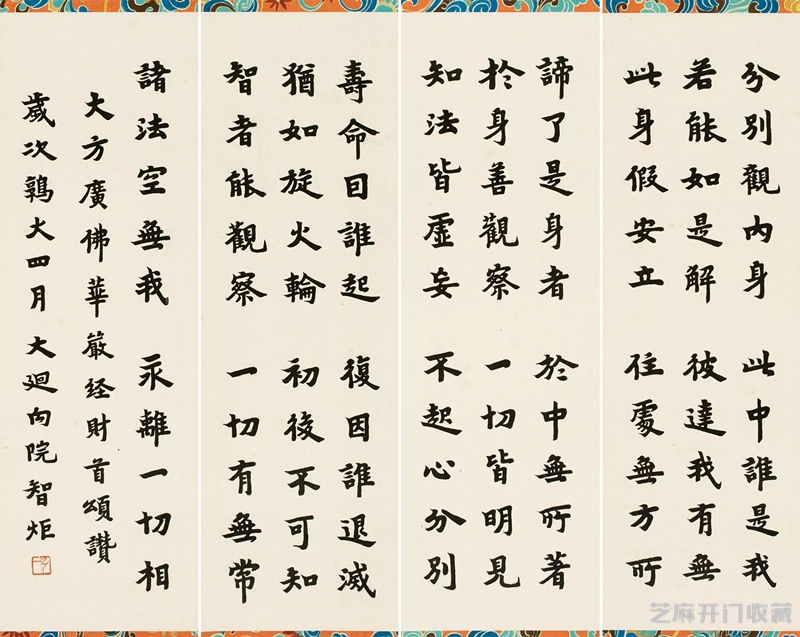 分別觀內身 此中誰是我
若能如是解 彼達我有無
此身假安立 住處無方所
諦了是身者 於中無所著
於身善觀察 一切皆明見
知法皆虛妄 不起心分別
壽命因誰起 復因誰退滅
猶如旋火輪 初後不可知
智者能觀察 一切有無常
諸法空無我 永離一切相
大方廣佛華嚴经財首頌讚
歲次鶉火四月 大迴向院智炬
芝麻开门收藏